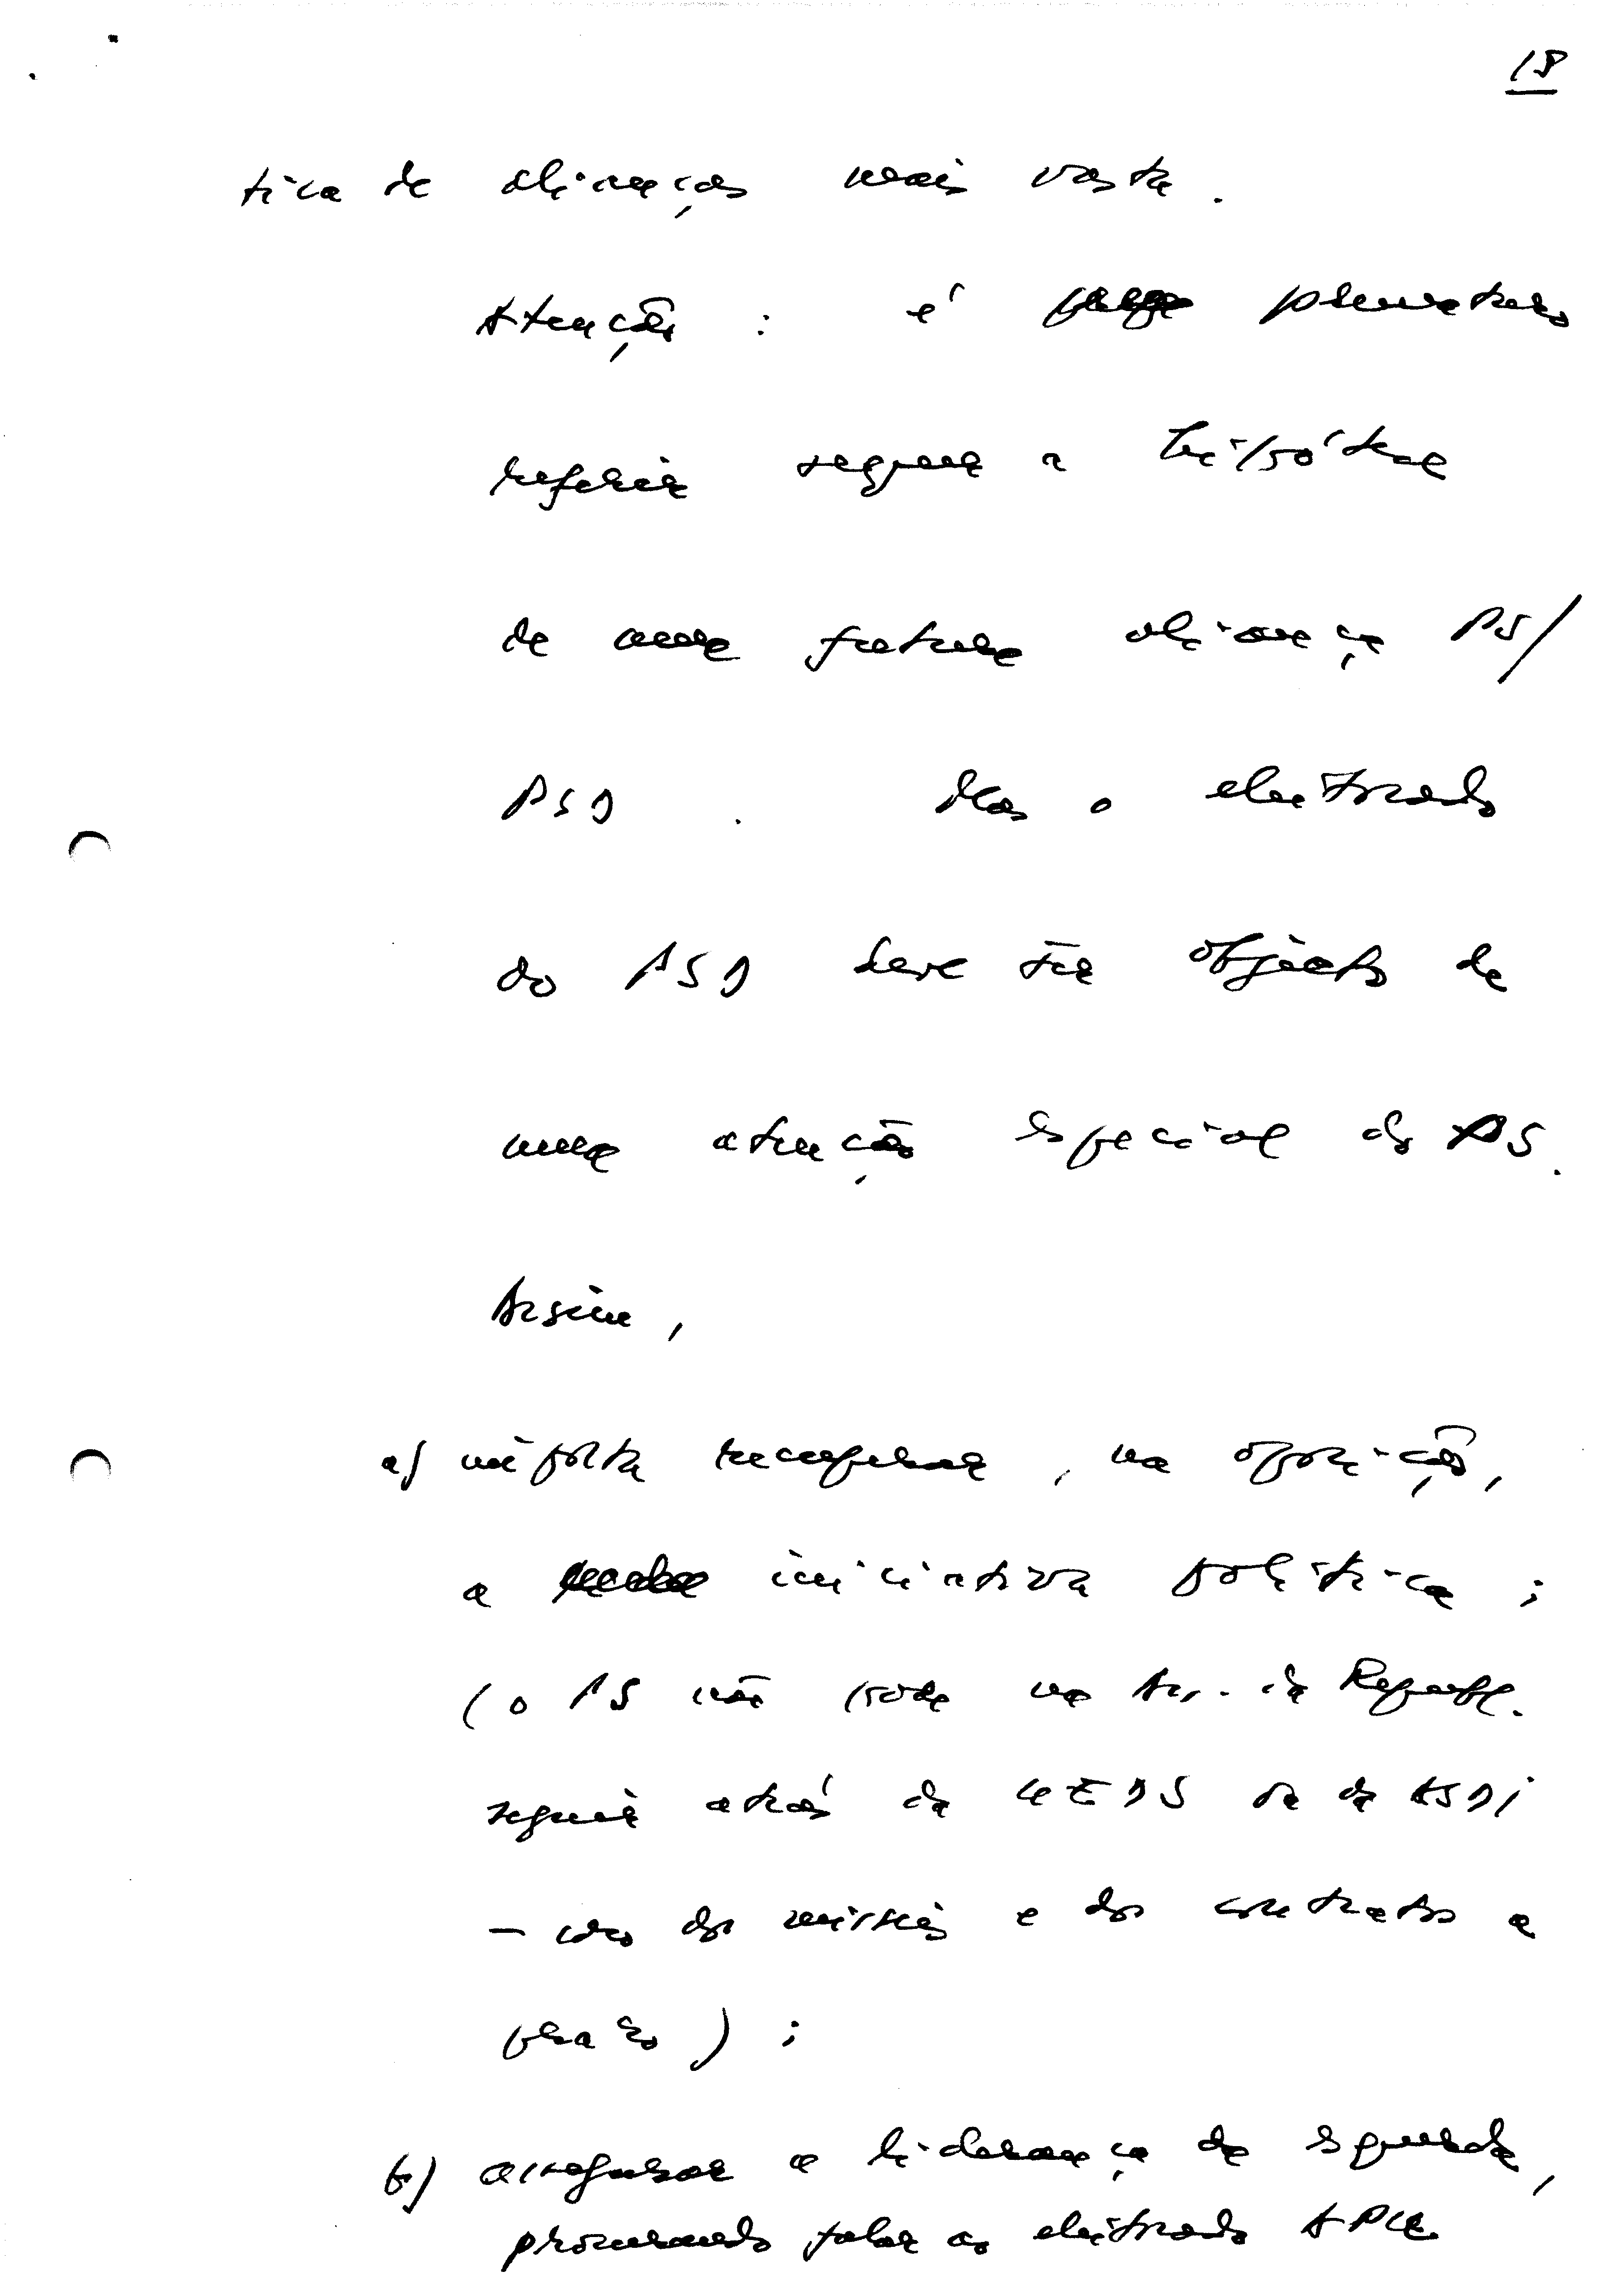 18
tica de alianças mais vasta.
Atenção: é prematuro
referir sequer a hipótese
de uma futura aliança PS/
PSD. Mas o eleitorado
do PSD deve ser objecto de
uma atenção especial do PS.
Assim,
a) importa recuperar, na oposição,
a iniciativa política;
(o PS não pode na As. da Repúbl.
seguir atrás da UEDS ou da ASDI
— caso dos mísseis e dos contratos a
prazo);
b) assegurar a liderança da esquerda,
procurando falar ao eleitorado APU